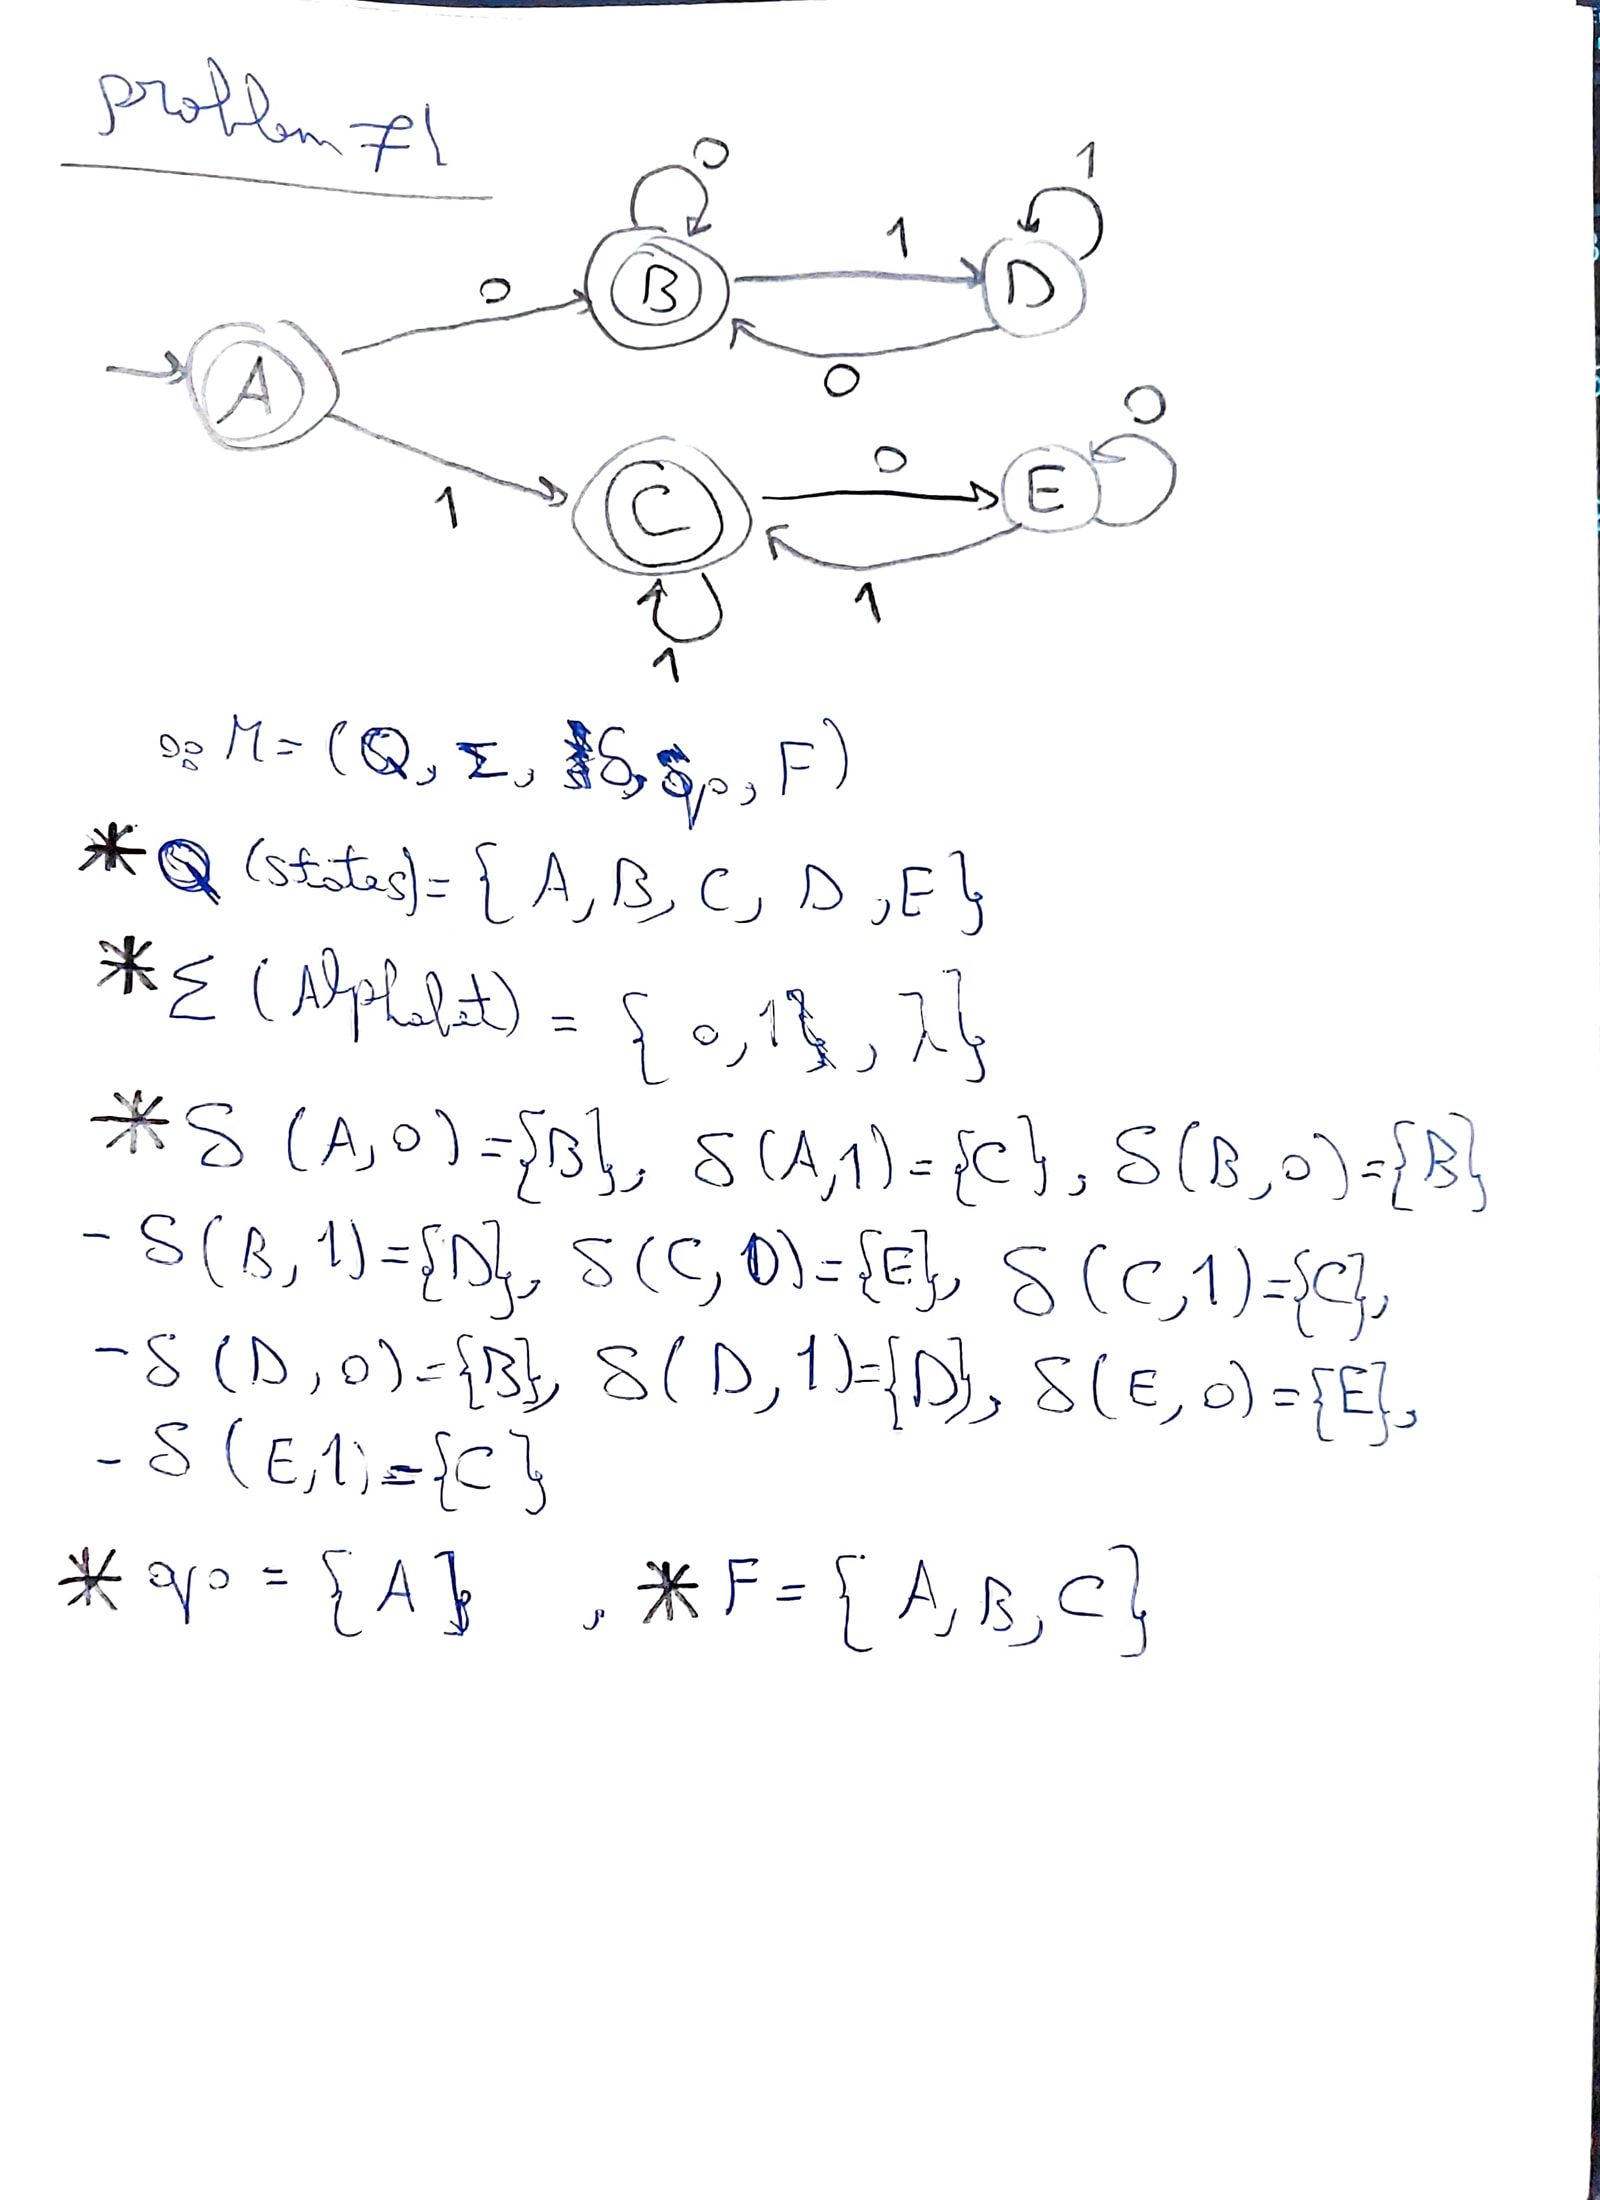 problem 71
0
1
B
1
D
0
A
0
0
0
C
E
1
1
1
∴ M = (Q, Σ, δ, q0, F)
* Q (states) = { A, B, C, D, E}
* Σ (Alphabet) = { 0, 1, λ}
* δ (A, 0) = {B}, δ(A,1) = {C}, δ(B,0) = {B}
- δ(B, 1) = {D}, δ(C, 0) = {E}, δ(C,1) = {C},
- δ(D, 0) = {B}, δ(D, 1) = {D}, δ(E, 0) = {E},
- δ(E,1) = {C}
* q0 = { A } , * F = { A, B, C}